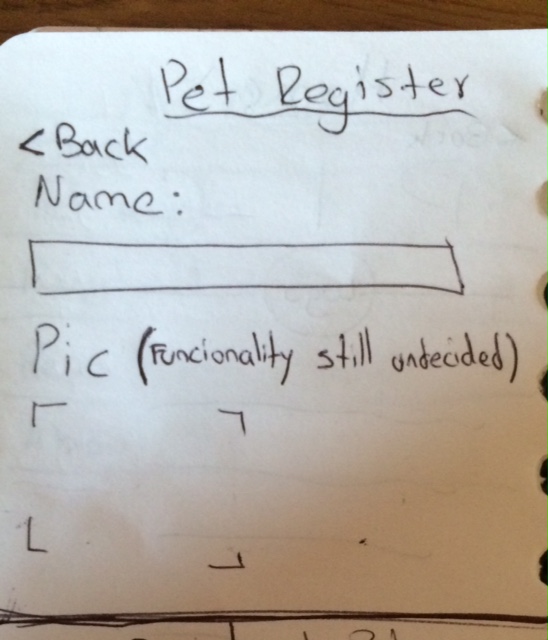 Pet Register
<Back
Name:
Pic (Funcionality still undecided)